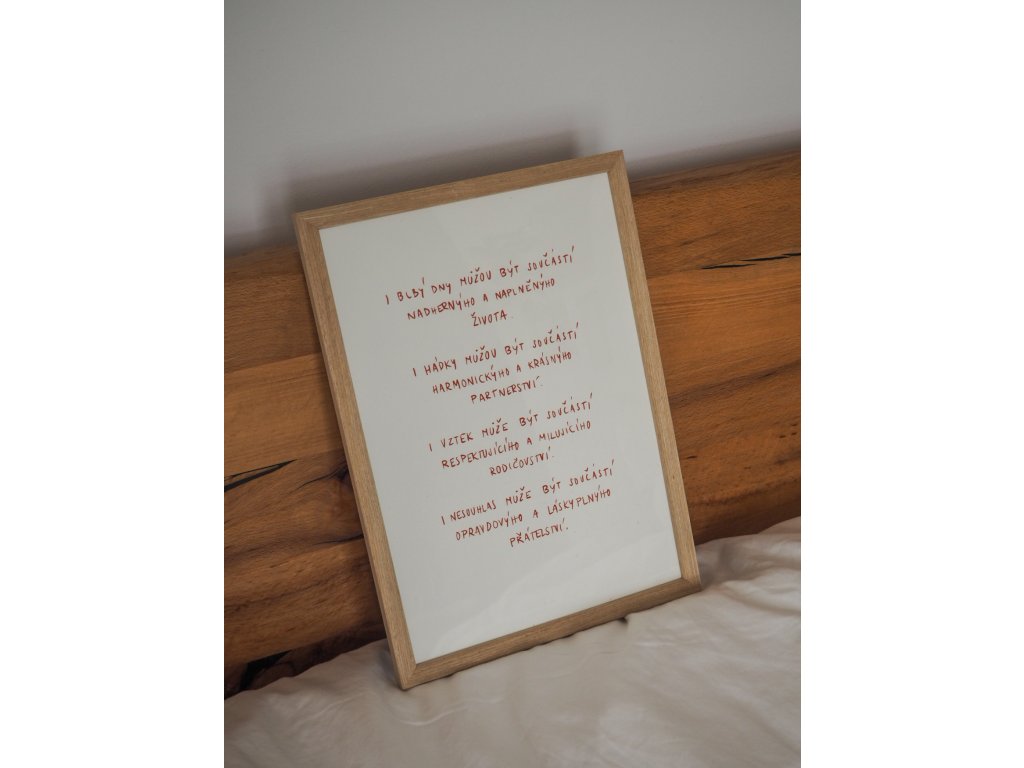 I BLBÝ DNY MŮŽOU BÝT SOUČÁSTÍ
NÁDHERNÝHO A NAPLNĚNÝHO
ŽIVOTA.
I HÁDKY MŮŽOU BÝT SOUČÁSTÍ
HARMONICKÝHO A KRÁSNÝHO
PARTNERSTVÍ.
I VZTEK MŮŽE BÝT SOUČÁSTÍ
RESPEKTUJÍCÍHO A MILUJÍCÍHO
RODIČOVSTVÍ.
I NESOUHLAS MŮŽE BÝT SOUČÁSTÍ
OPRAVDOVÝHO A LÁSKYPLNÝHO
PŘÁTELSTVÍ.